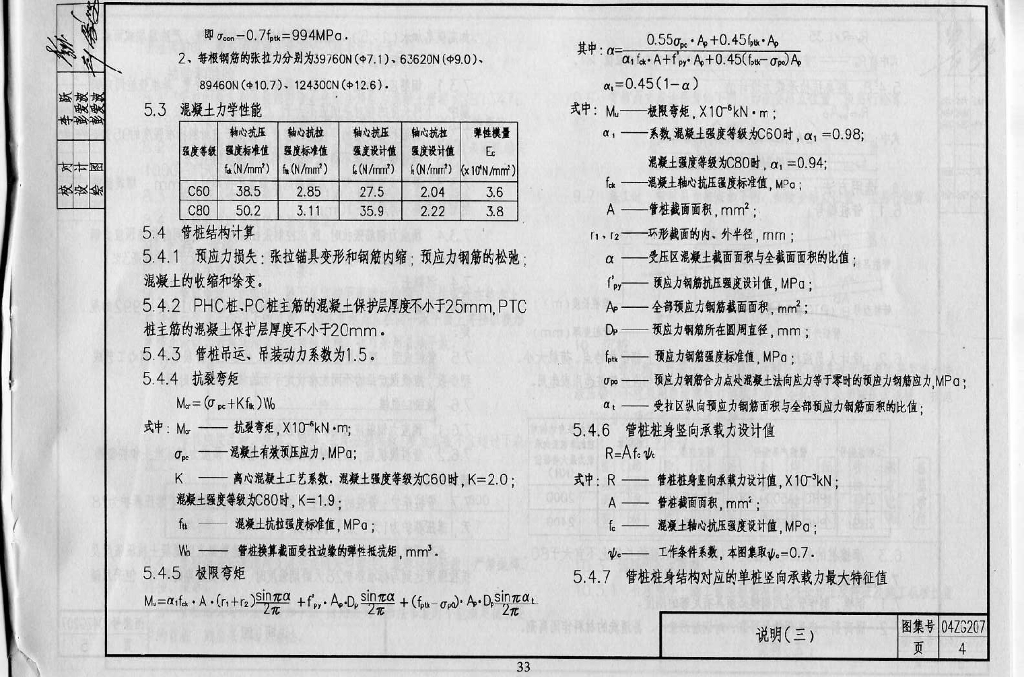 即 σcon=0.7fptk=994MPa.
2、每根钢筋的张拉力分别为39760N(Φ7.1)、63620N(Φ9.0)、
89460N(Φ10.7)、124300N(Φ12.6).
5.3 混凝土力学性能
强度等级 轴心抗压强度标准值 fck(N/mm²) 轴心抗拉强度标准值 ftk(N/mm²) 轴心抗压强度设计值 fc(N/mm²) 轴心抗拉强度设计值 ft(N/mm²) 弹性模量 Ec (x10⁴N/mm²)
C60 38.5 2.85 27.5 2.04 3.6
C80 50.2 3.11 35.9 2.22 3.8
5.4 管桩结构计算
5.4.1 预应力损失：张拉锚具变形和钢筋内缩；预应力钢筋的松弛；
混凝土的收缩和徐变。
5.4.2 PHC桩、PC桩主筋的混凝土保护层厚度不小于25mm,PTC
桩主筋的混凝土保护层厚度不小于20mm。
5.4.3 管桩吊运、吊装动力系数为1.5。
5.4.4 抗裂弯矩
Mcr=(σpc+Kftk)W₀
式中：Mcr —— 抗裂弯矩,X10⁻⁶kN·m;
σpc —— 混凝土有效预压应力,MPa;
K —— 离心混凝土工艺系数，混凝土强度等级为C60时,K=2.0;
混凝土强度等级为C80时,K=1.9;
ftk —— 混凝土抗拉强度标准值,MPa;
W₀ —— 管桩换算截面受拉边缘的弹性抵抗矩,mm³.
5.4.5 极限弯矩
Mu=α₁fck·A·(r₁+r₂)sinπα/2π +f'py·Ap·Dp sinπα/2π +(fptk-σp0)·Ap·Dp sinπαt/2π
其中：α= 0.55σpc·Ap+0.45fptk·Ap / α₁fck·A+f'py·Ap+0.45(fptk-σp0)Ap
αt=0.45(1-α)
式中：Mu —— 极限弯矩,X10⁻⁶kN·m;
α₁ —— 系数,混凝土强度等级为C60时,α₁=0.98;
混凝土强度等级为C80时,α₁=0.94;
fck —— 混凝土轴心抗压强度标准值,MPa;
A —— 管桩截面面积,mm²;
r₁、r₂ —— 环形截面的内、外半径,mm;
α —— 受压区混凝土截面面积与全截面面积的比值;
f'py —— 预应力钢筋抗压强度设计值,MPa;
Ap —— 全部预应力钢筋截面面积,mm²;
Dp —— 预应力钢筋所在圆周直径,mm;
fptk —— 预应力钢筋强度标准值,MPa;
σp0 —— 预应力钢筋合力点处混凝土法向应力等于零时的预应力钢筋应力,MPa;
αt —— 受拉区纵向预应力钢筋面积与全部预应力钢筋面积的比值;
5.4.6 管桩桩身竖向承载力设计值
R=Afcψc
式中：R —— 管桩桩身竖向承载力设计值,X10⁻³kN;
A —— 管桩截面面积,mm²;
fc —— 混凝土轴心抗压强度设计值,MPa;
ψc —— 工作条件系数,本图集取ψc=0.7.
5.4.7 管桩桩身结构对应的单桩竖向承载力最大特征值
说明(三)
图集号 04ZG207
页 4
33
校 对
设 计
绘 图